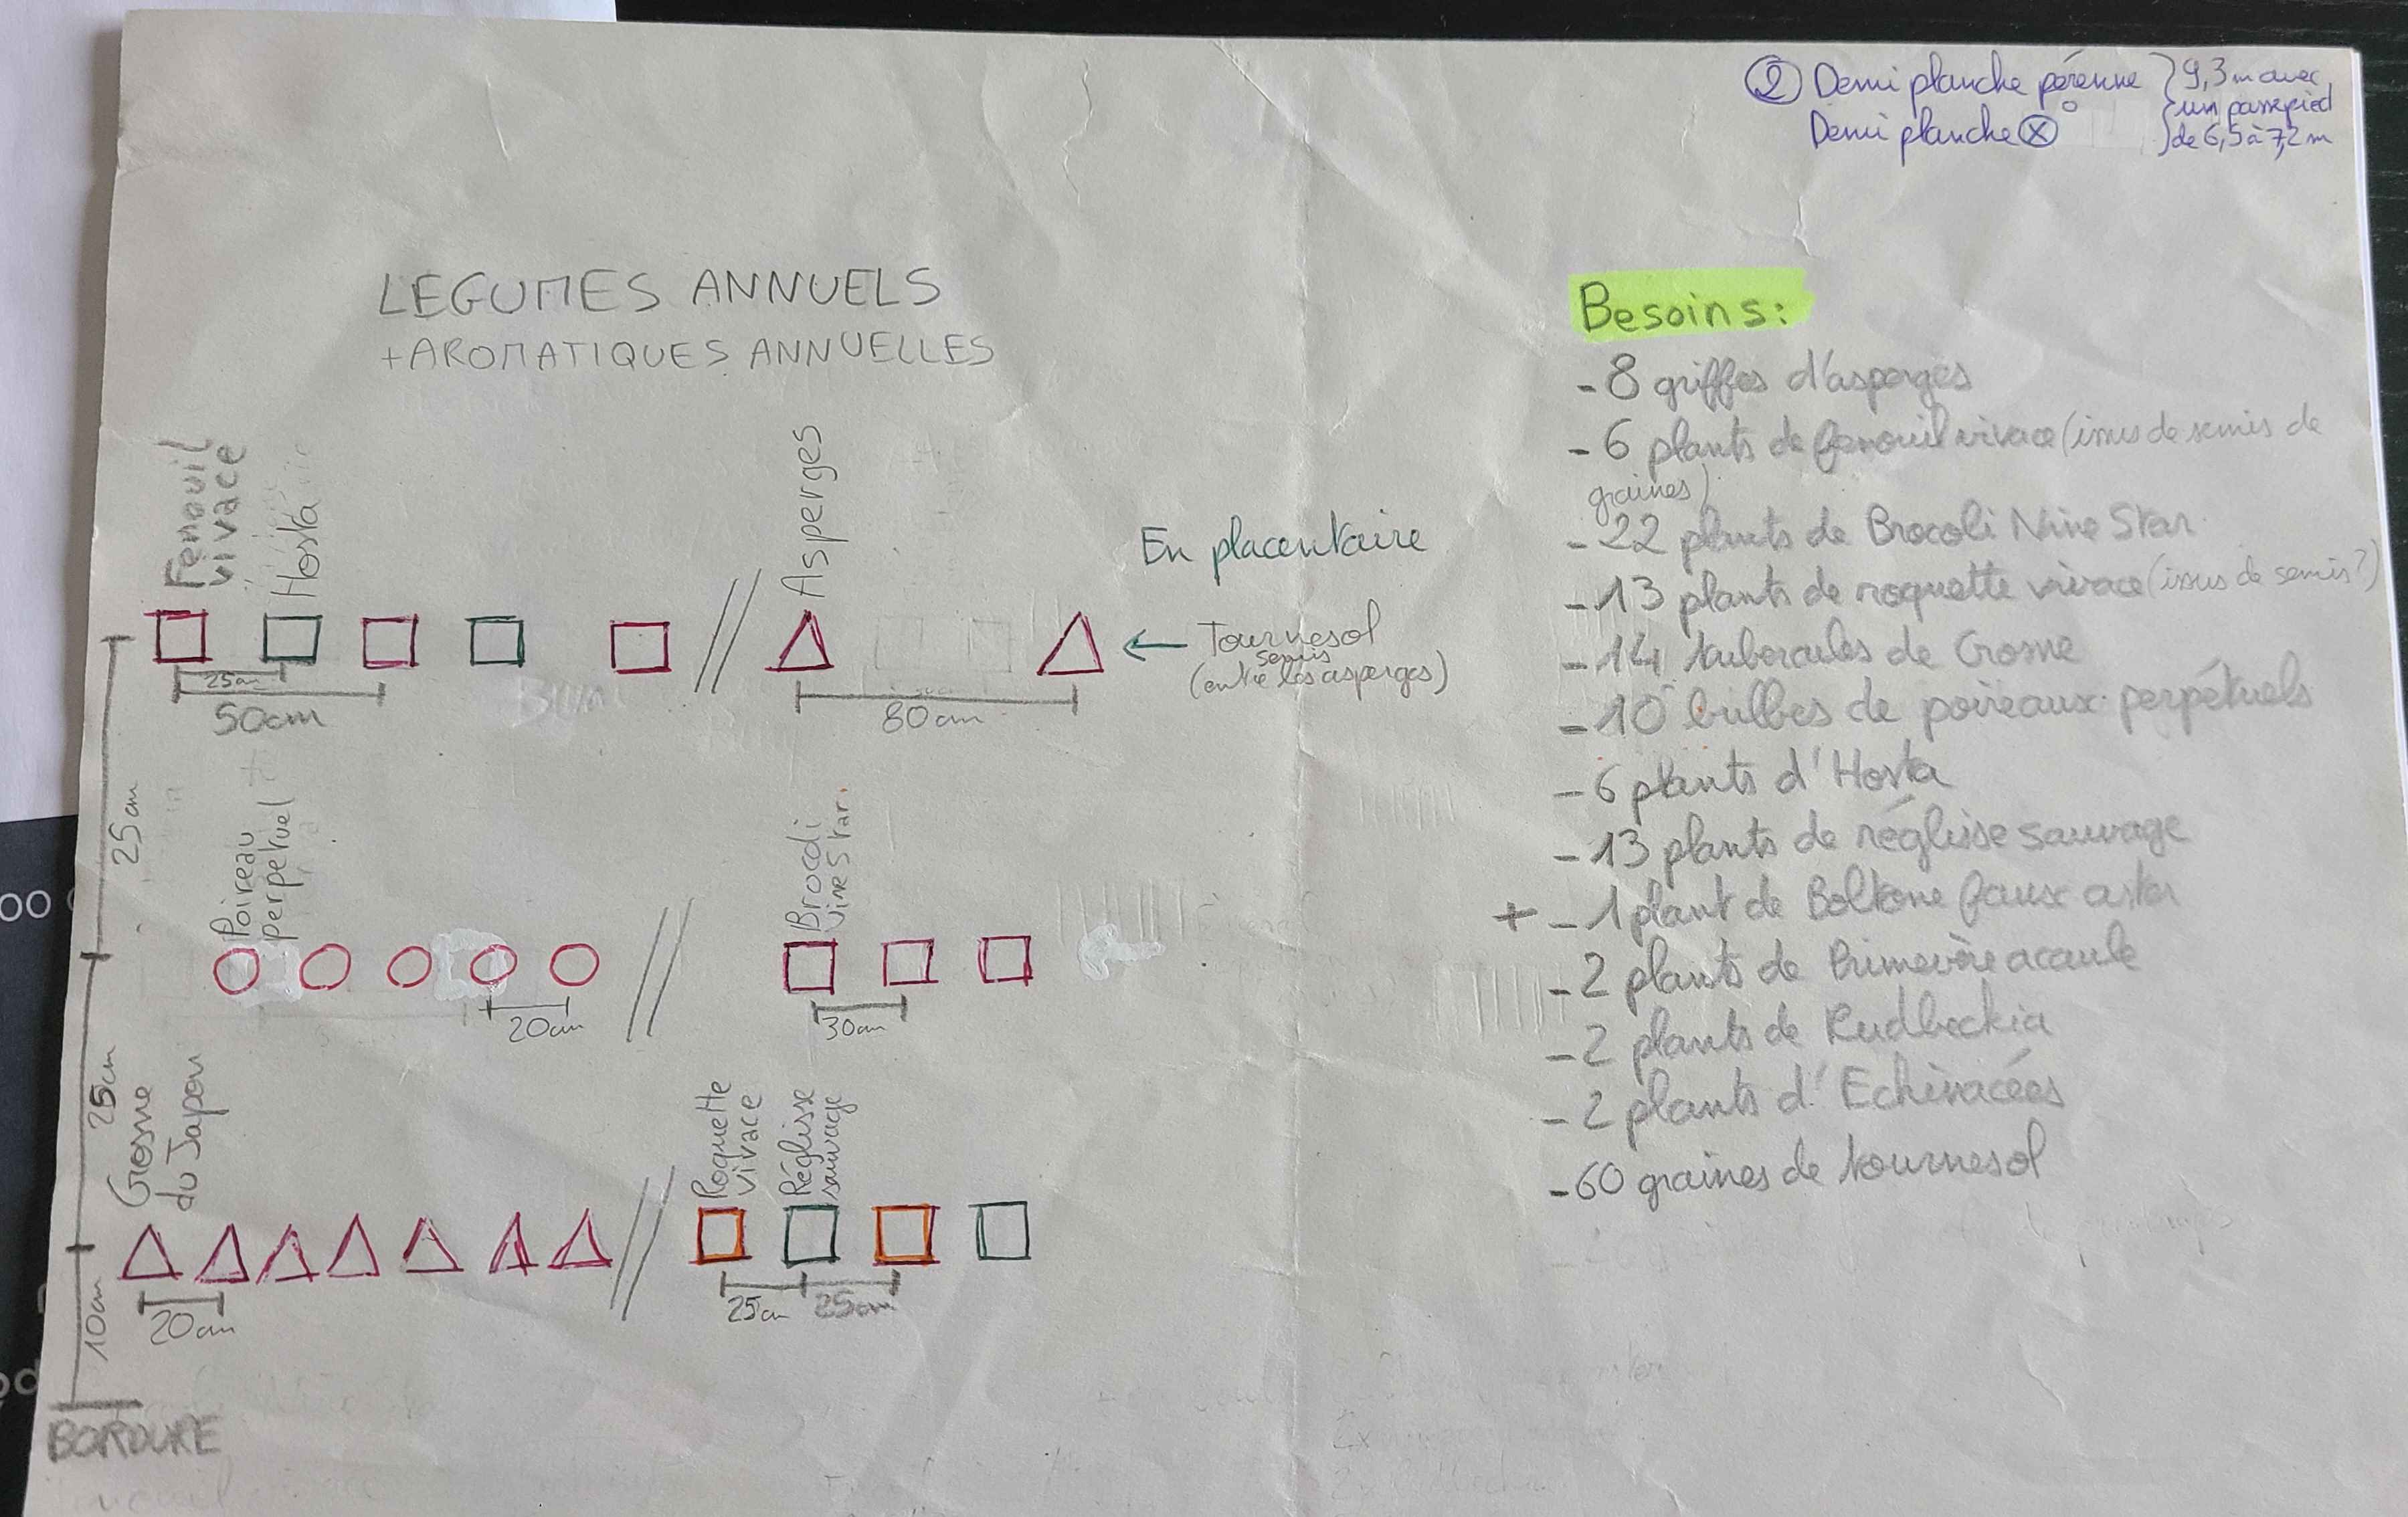 ② Demi planche pérenne } 9,3 m avec
Demi planche ⓧ un passepied
de 6,5 à 7,2 m
LEGUMES ANNUELS
+ AROMATIQUES ANNUELLES
Fenouil
vivace
Hosta
Asperges
En placentaire
← Tournesol
semis
(entre les asperges)
25cm
50cm
80cm
25cm
Poireau
perpetuel
Brocoli
Nine Star
20cm
30cm
25cm
Crosne
du Japon
Roquette
vivace
Réglisse
sauvage
20cm
25cm
25cm
10cm
BORDURE
Besoins:
- 8 griffes d'asperges
- 6 plants de fenouil vivace (issus de semis de
graines)
- 22 plants de Brocoli Nine Star
- 13 plants de roquette vivace (issus de semis?)
- 14 tubercules de Crosne
- 10 bulbes de poireaux perpétuels
- 6 plants d'Hosta
- 13 plants de réglisse sauvage
+ - 1 plant de Boltone faux aster
- 2 plants de Primevère acaule
- 2 plants de Rudbeckia
- 2 plants d'Echinacées
- 60 graines de tournesol